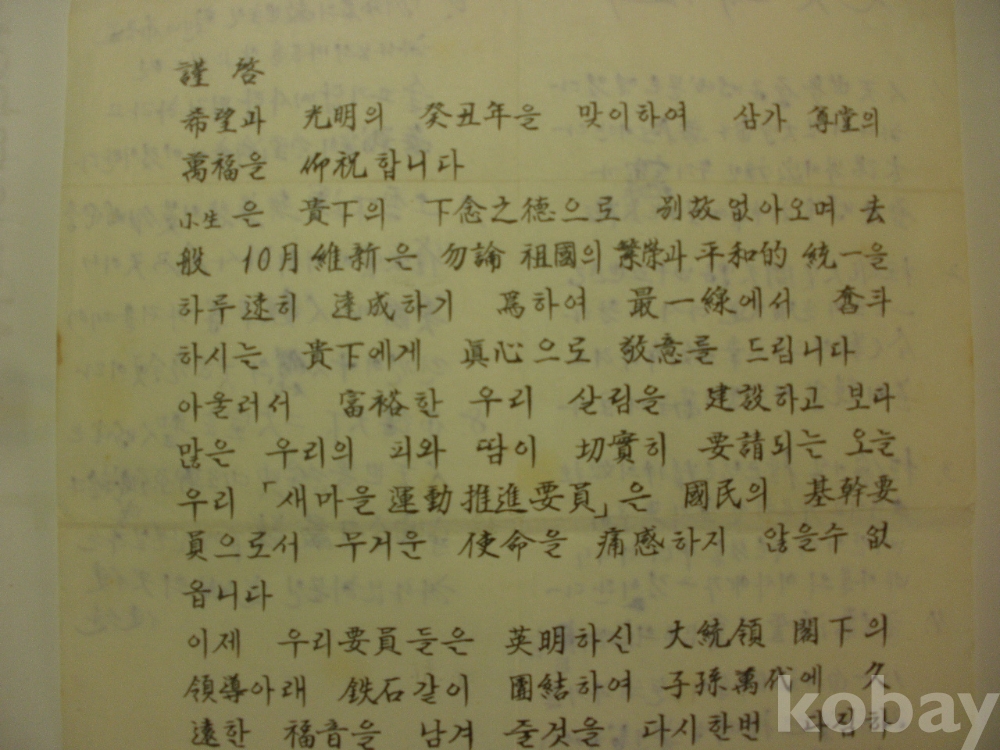 謹 啓
希望과 光明의 癸丑年을 맞이하여 삼가 尊堂의
萬福을 仰祝합니다
小生은 貴下의 下念之德으로 別故없아오며 去
般 10月維新은 勿論 祖國의 繁榮과 平和的 統一을
하루速히 達成하기 爲하여 最一線에서 奮斗
하시는 貴下에게 眞心으로 敬意를 드립니다
아울러서 富裕한 우리 살림을 建設하고 보다
많은 우리의 피와 땀이 切實히 要請되는 오늘
우리 「새마을運動推進要員」은 國民의 基幹要
員으로서 무거운 使命을 痛感하지 않을수 없
읍니다
이제 우리要員들은 英明하신 大統領 閣下의
領導아래 鉄石같이 團結하여 子孫萬代에 久
遠한 福音을 남겨 줄것을 다시한번 다짐하
kobay